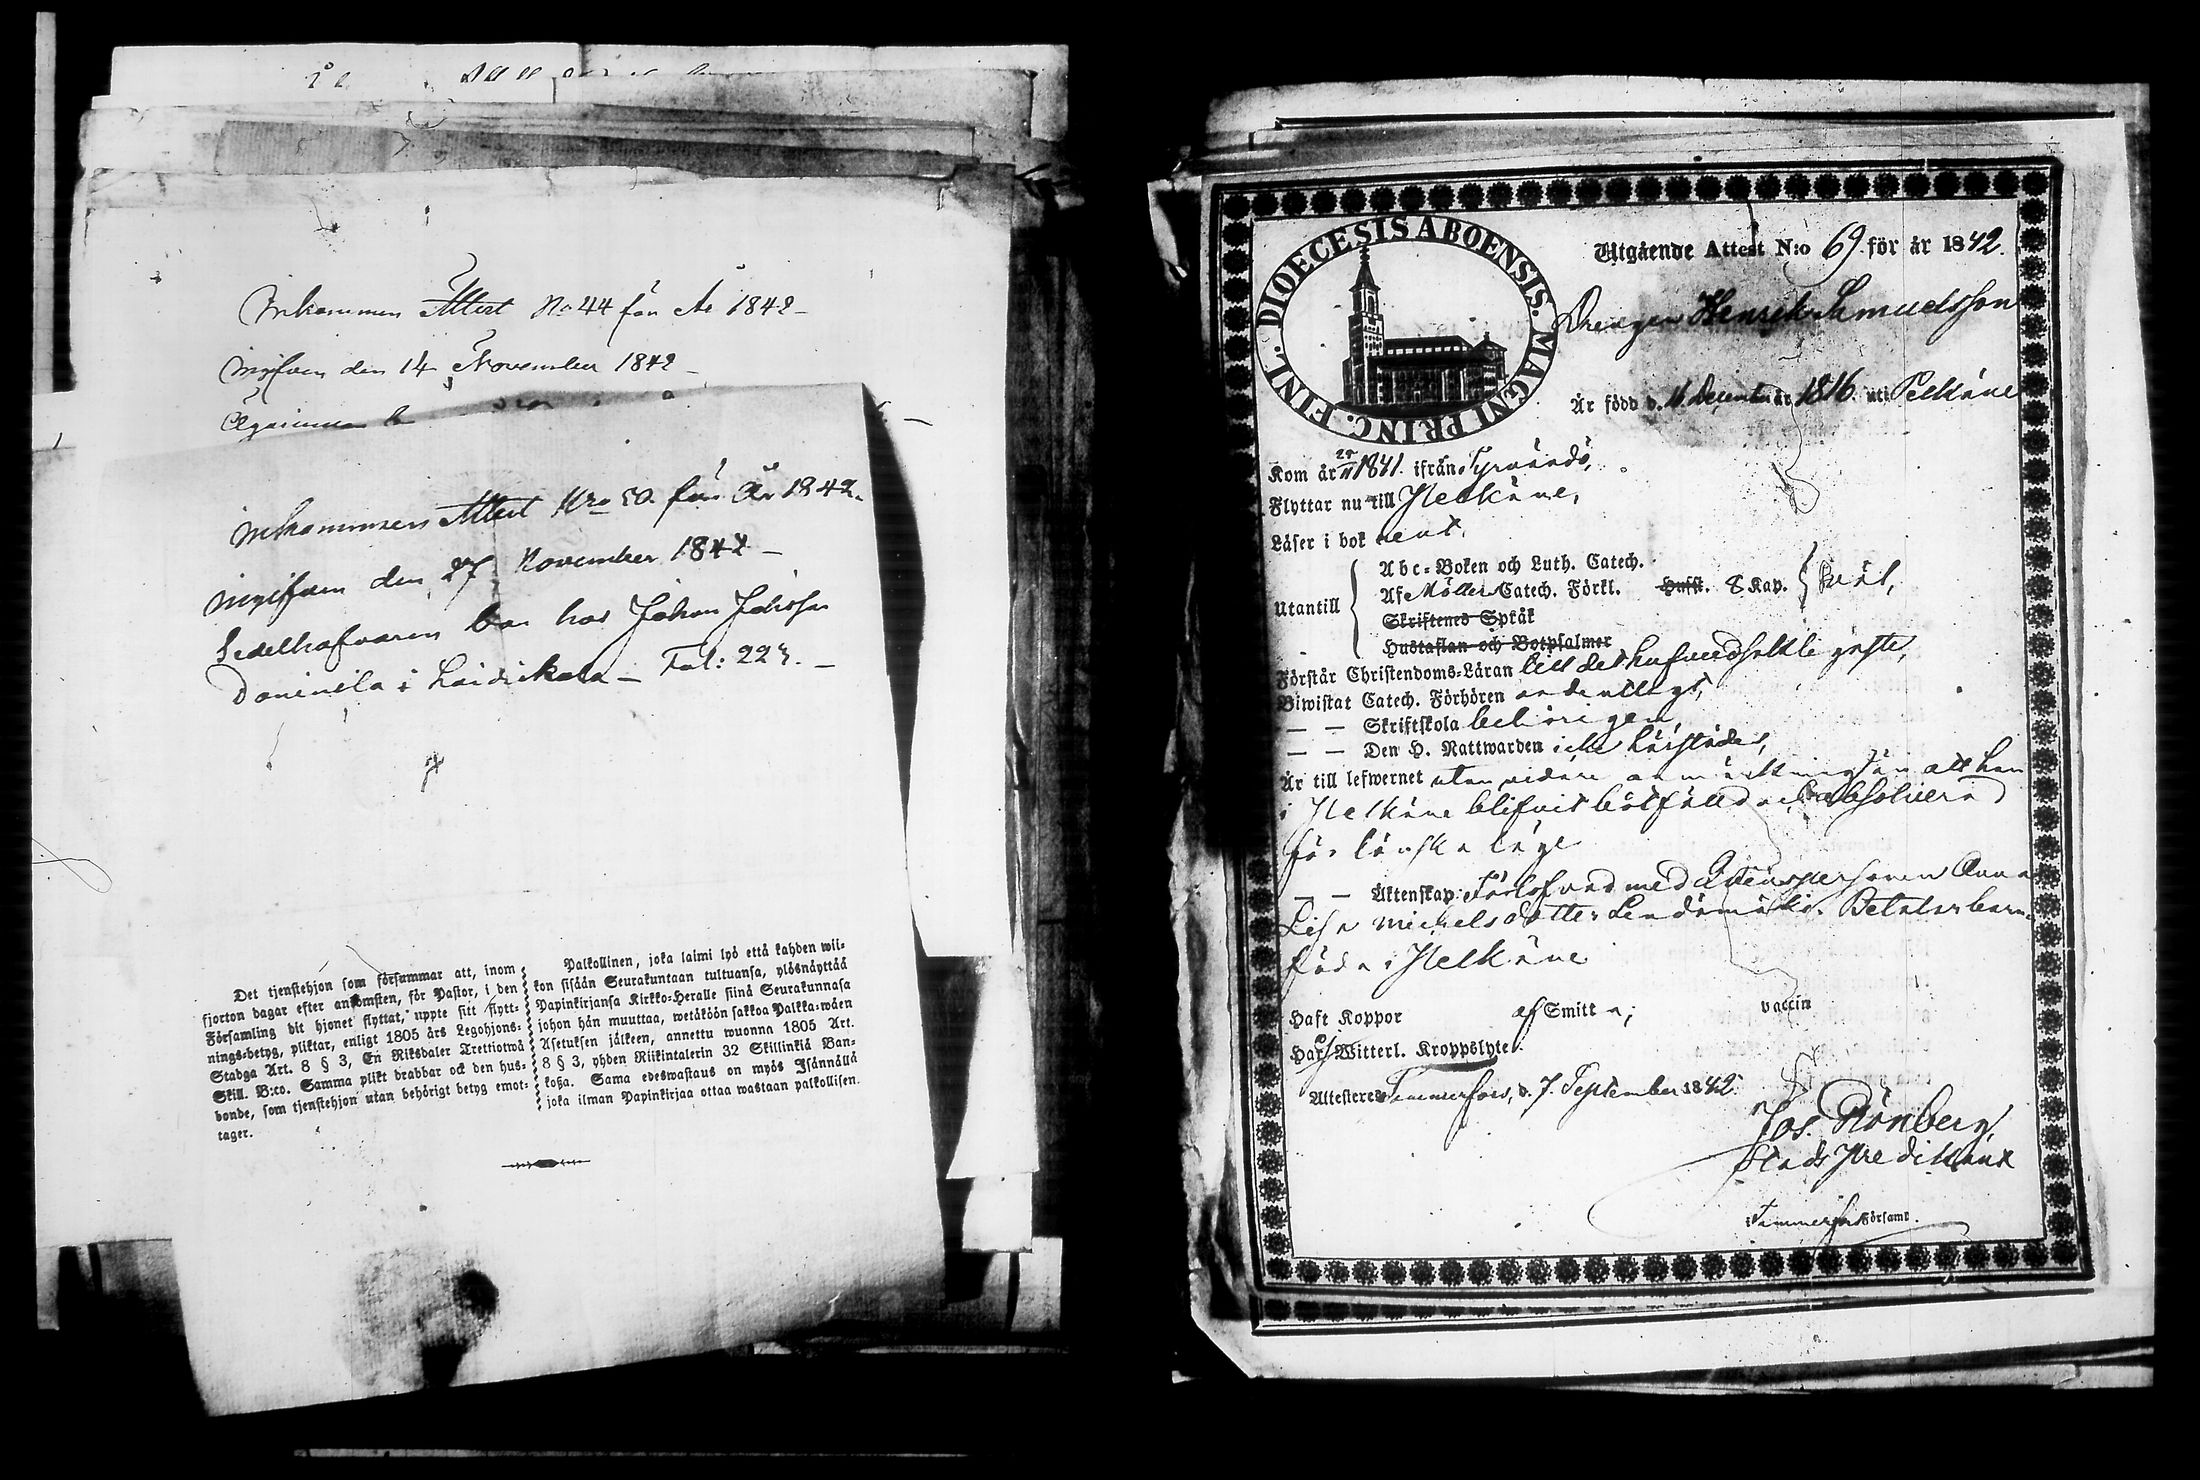 Inkommen Attest No 44 för År 1842 –
Ingifven den 14 November 1842 –
Inkommen Attest Nro 50. för År 1842.
Ingifven den 27 November 1842 –
Sedelhafvaren bor hos Johan Johansson
Daninila i Laidikala – Fol: 223. –
Det tjenstehjon som försummar att, inom
fjorton dagar efter ankomsten, för Pastor, i den
Församling dit hjonet flyttat, uppte sitt flytt-
nings-betyg, pliktar, enligt 1805 års Legohjons-
Stadga Art. 8 § 3, En Riksdaler Trettiotwå
Skill. B:co. Samma plikt drabbar ock den hus-
bonde, som tjenstehjon utan behörigt betyg emot-
tager.
Palkollinen, joka laimi lyö että kahden wii-
kon sisään Seurakuntaan tultuansa, ylösnäyttää
Papinkirjansa Kirkko-Heralle siinä Seurakunnasa
johon hän muuttaa, wetäköön sakkoa Palkka-wäen
Asetuksen jälkeen, annettu wuonna 1805 Art.
8 § 3, yhden Riikintalerin 32 Skillinkiä Ban-
koßa. Sama edeswastaus on myös Isännällä
joka ilman Papinkirjaa ottaa wastaan palkollisen.
DIOECESIS ABOENSIS. MAGNI PRINC. FINL.
Utgående Attest N:o 69 för år 1842.
Drengen Henrik Samuelsson
Är född d. 11 December år 1816. uti Pelkäne
Kom år 1841. ifrån Tyrvändö,
Flyttar nu till Pelkäne,
Läser i bok rent.
Utantill
Abc-Boken och Luth. Catech.
Af Möllers Catech. Förkl. Husst. 8 Kap.
Skriftenes Språk
Hustaflan och Botpsalmer
Förstår Christendoms-Läran till det hufvudsakligaste,
Biwistat Catech. Förhören ordentligt,
— — Skriftskola behörigen,
— — Den H. Nattwarden icke härstädes,
Är till lefwernet utan vidare anmärkning än att han
i Pelkäne blifvit bötfälld och absolverad
för lönskaläge
— — Äktenskap: Förlofvad med Qvinspersonen Anna
Lisa Michelsdotter
född i Pelkäne
Haft Koppor af Smitta; vaccin
Har Witterl. Kroppslyte.
Attesteres Tammerfors, d. 7. September 1842.
Jos. Rönberg
Stads Predikant
i Tammerfors Församl.